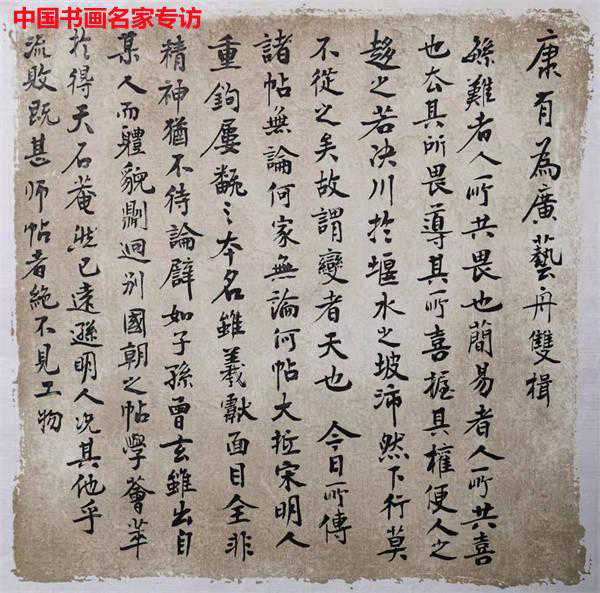 中国书画名家专访
康有為廣藝舟雙楫
繇難者人所共畏也簡易者人所共喜
也去其所畏導其所喜握其權便人之
趨之若決川於堰水之坡沛然下行莫
不從之矣故謂變者天也 今日所傳
諸帖無論何家無論何帖大抵宋明人
重鉤屢翻之本名雖羲獻面目全非
精神猶不待論譬如子孫曾玄雖出自
某人而體貌鼎迥别國朝之帖學薈萃
於得天石菴然已遠遜明人况其他乎
流敗既甚师帖者絶不見工物